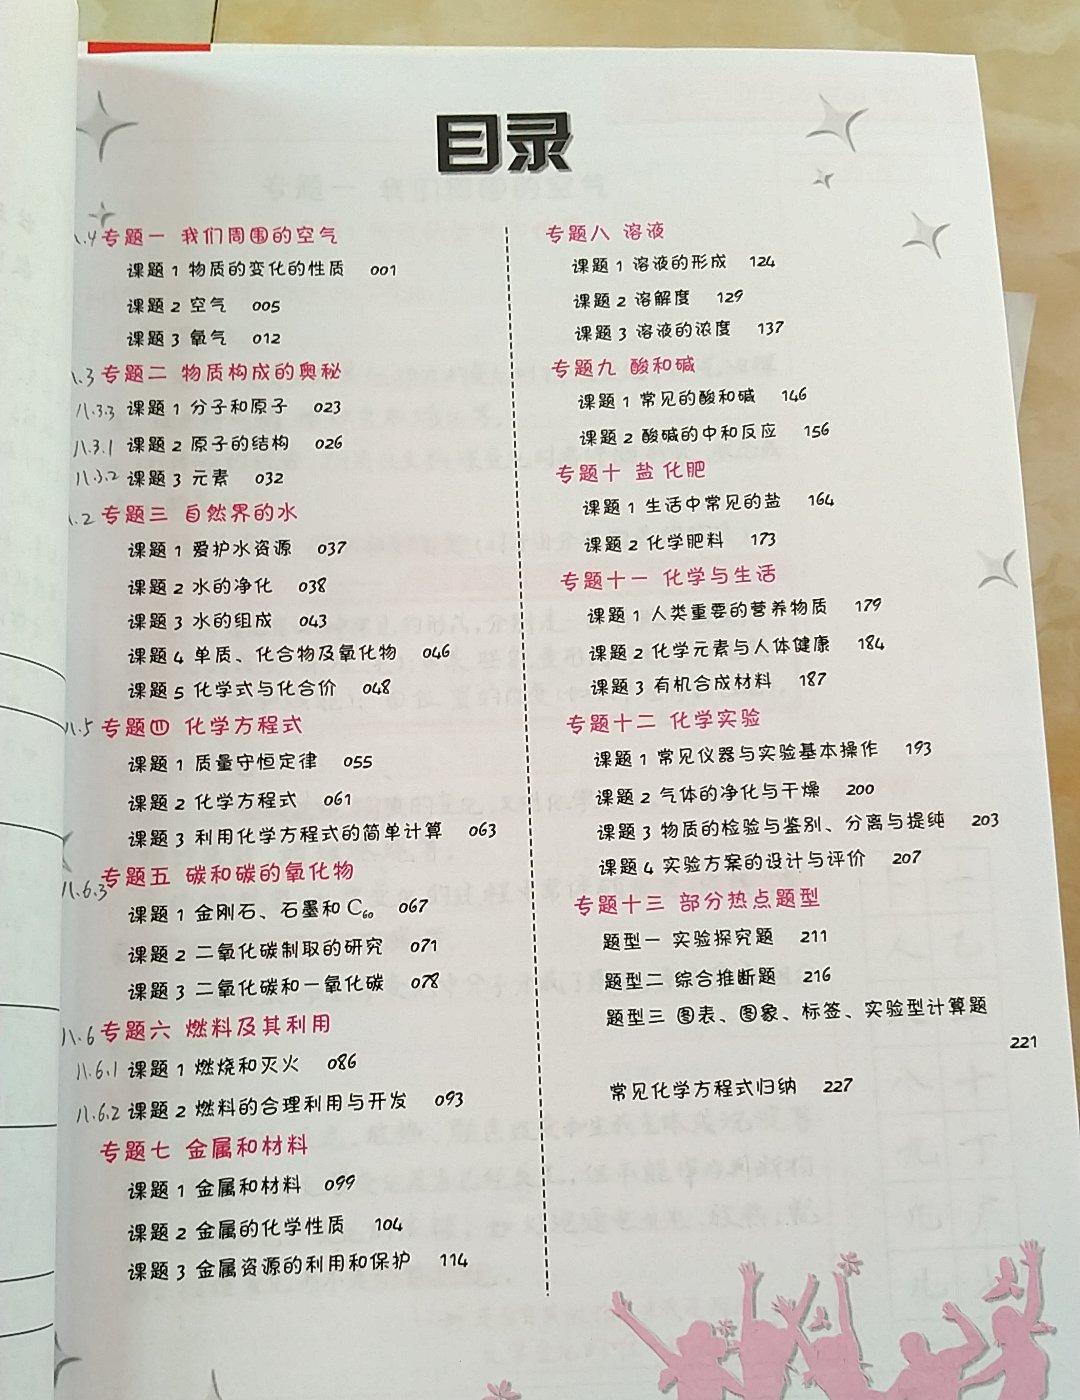 目录
八.4 专题一 我们周围的空气
课题1 物质的变化的性质 001
课题2 空气 005
课题3 氧气 012
八.3 专题二 物质构成的奥秘
八.3.3 课题1 分子和原子 023
八.3.1 课题2 原子的结构 026
八.3.2 课题3 元素 032
八.2 专题三 自然界的水
课题1 爱护水资源 037
课题2 水的净化 038
课题3 水的组成 043
课题4 单质、化合物及氧化物 046
课题5 化学式与化合价 048
八.5 专题四 化学方程式
课题1 质量守恒定律 055
课题2 化学方程式 061
课题3 利用化学方程式的简单计算 063
八.6.3 专题五 碳和碳的氧化物
课题1 金刚石、石墨和C₆₀ 067
课题2 二氧化碳制取的研究 071
课题3 二氧化碳和一氧化碳 078
八.6 专题六 燃料及其利用
八.6.1 课题1 燃烧和灭火 086
八.6.2 课题2 燃料的合理利用与开发 093
专题七 金属和材料
课题1 金属和材料 099
课题2 金属的化学性质 104
课题3 金属资源的利用和保护 114
专题八 溶液
课题1 溶液的形成 124
课题2 溶解度 129
课题3 溶液的浓度 137
专题九 酸和碱
课题1 常见的酸和碱 146
课题2 酸碱的中和反应 156
专题十 盐 化肥
课题1 生活中常见的盐 164
课题2 化学肥料 173
专题十一 化学与生活
课题1 人类重要的营养物质 179
课题2 化学元素与人体健康 184
课题3 有机合成材料 187
专题十二 化学实验
课题1 常见仪器与实验基本操作 193
课题2 气体的净化与干燥 200
课题3 物质的检验与鉴别、分离与提纯 203
课题4 实验方案的设计与评价 207
专题十三 部分热点题型
题型一 实验探究题 211
题型二 综合推断题 216
题型三 图表、图象、标签、实验型计算题
221
常见化学方程式归纳 227